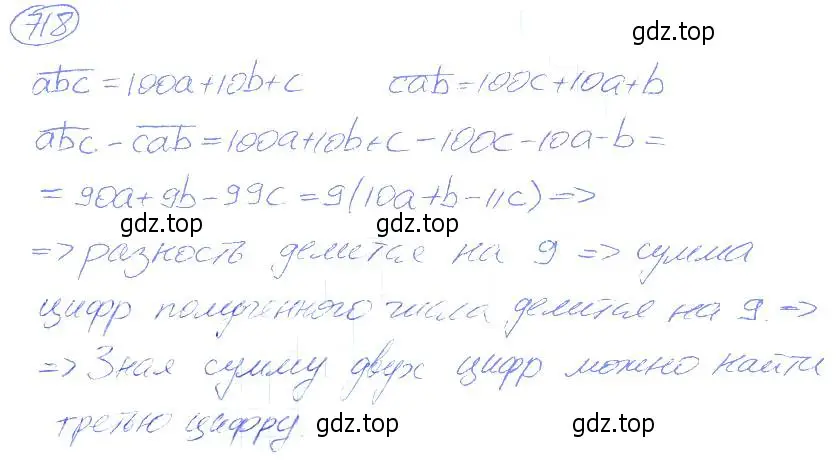 718
gdz.top
abc = 100a+10b+c cab = 100c+10a+b
abc - cab = 100a+10b+c-100c-10a-b =
= 90a+9b-99c = 9(10a+b-11c) =>
gdz.top gdz.top
=> разность делится на 9 => сумма
цифр полученного числа делится на 9 =>
=> Зная сумму двух цифр можно найти
третью цифру.
gdz.top gdz.top